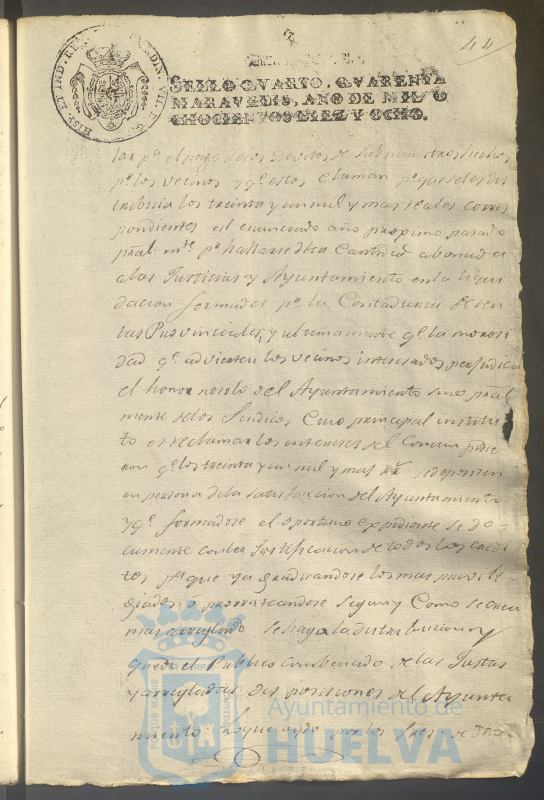 44
HISP. ET IND. R
SELLO QVARTO. QVARENTA
MARAVEDIS, AÑO DE MIL O
CHOCIENTOS DIEZ Y OCHO.
el pago de los Devitos de Subministros hechos
pr. los vecinos y qe. estos claman pr. que se les dis
tribuia los treinta y un mil y mas reales corres
pondientes al enunciado año proximo pasado
pral. mte. pr. hallarse dha Cantidad abonada
a las Justicias y Ayuntamiento en la liqui
dacion formada pr. la Contaduria de ren
tas Provinciales, y ultimamente qe. la morosi
dad qe. advierten los vecinos interesados perjudica
el honor no solo del Ayuntamiento sino pral.
mente de los Sindicos Cuio principal institu
to es reclamar los intereses del Comun pidie
ron qe. los treinta y un mil y mas rs. se depositen
en persona de la satisfaccion del Ayuntamiento
y qe. formadose el oportuno expediente se do-
cumente con la Justificacion de todos los credi
tos pa. que ya graduandose los mas privile
giados o prorrateandose segun y Como se crea
mas arreglado se haga la distribucion y
quede el Publico combencido de las Justas
y arregladas disposiciones del Ayunta
miento: lo que oydo por los Sres.
Ayuntamiento de
HUELVA